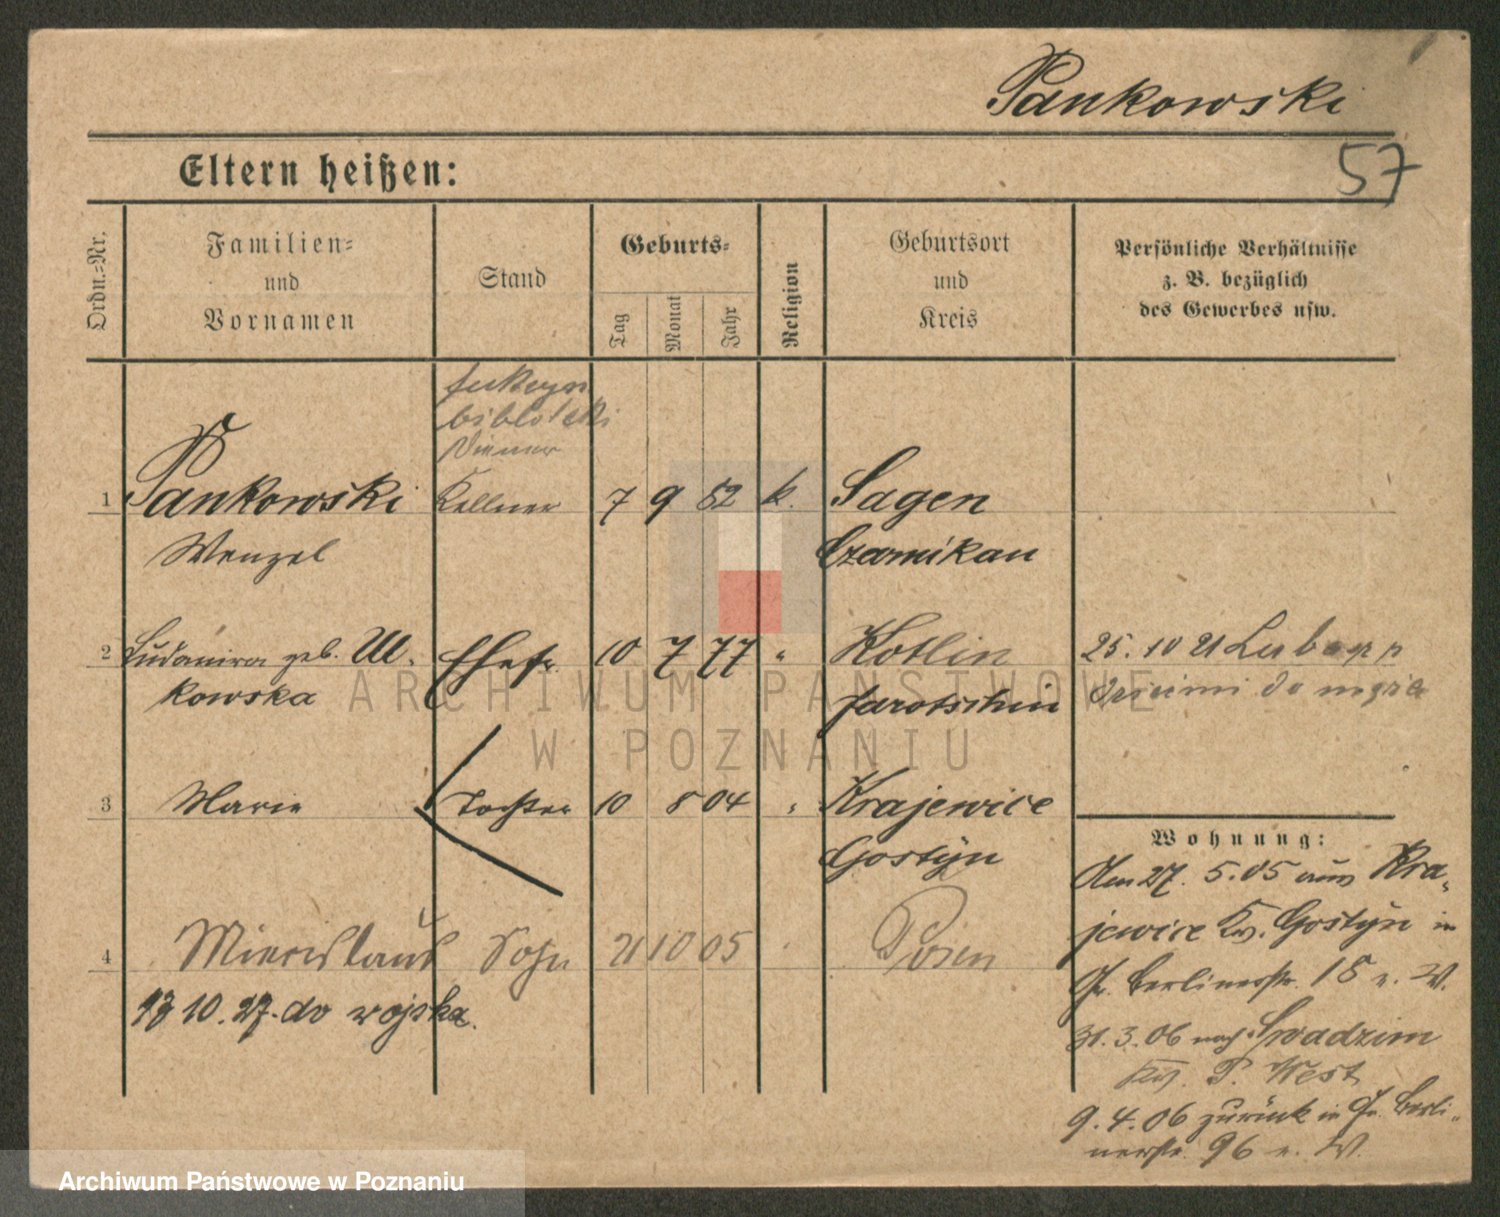 Pankowski
57
Eltern heißen:
Ordn.-Nr.
Familien-
und
Vornamen
Stand
Geburts-
Tag
Monat
Jahr
Religion
Geburtsort
und
Kreis
Persönliche Verhältnisse
z. B. bezüglich
des Gewerbes usw.
Diener
1 Pankowski Kellner 7 9 82 k. Sagen
Wenzel Czarnikau
2 geb. Ul- Ehefr. 10 7 77 " Kotlin 25. 10 21
kowska Jarotschin
3 Marie Tochter 10 8 04 " Krajewice
Gostÿn
4 Miecislaus Sohn 21 10 05 Posen
10. 27. do wojska.
Wohnung:
Am 27. 5. 05 aus Kra-
jewice Kr. Gostÿn in
Gr. Berlinerstr. 18 n. W.
31. 3. 06 nach Swadzim
Krs. P. West
9. 4. 06 zurück in Gr. Berli-
nerstr. 96 n. W.
ARCHIWUM PAŃSTWOWE
W POZNANIU
Archiwum Państwowe w Poznaniu